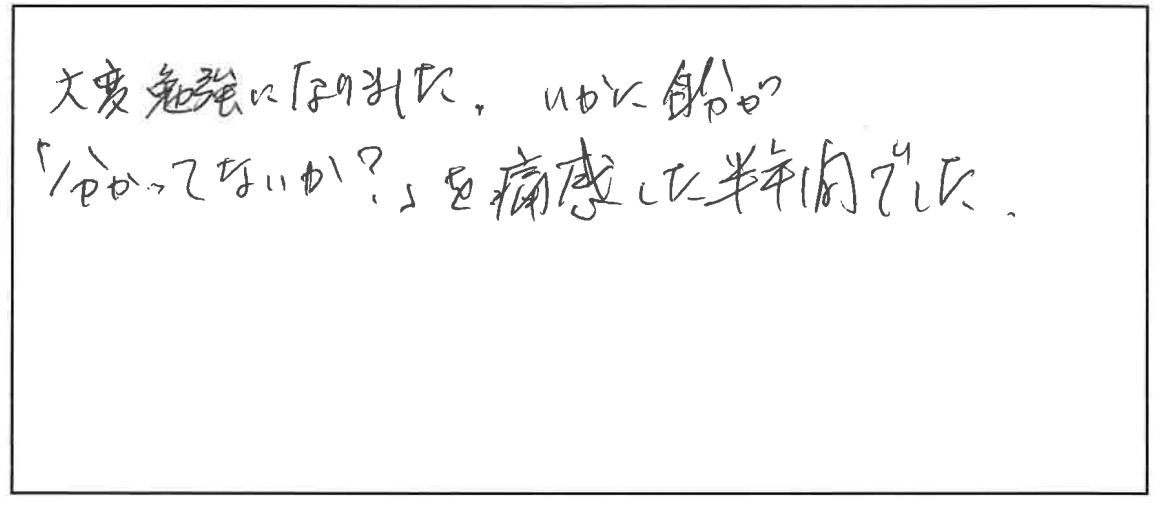 大変勉強になりました。いかに自分が
「分かってないか?」を痛感した半年間でした。